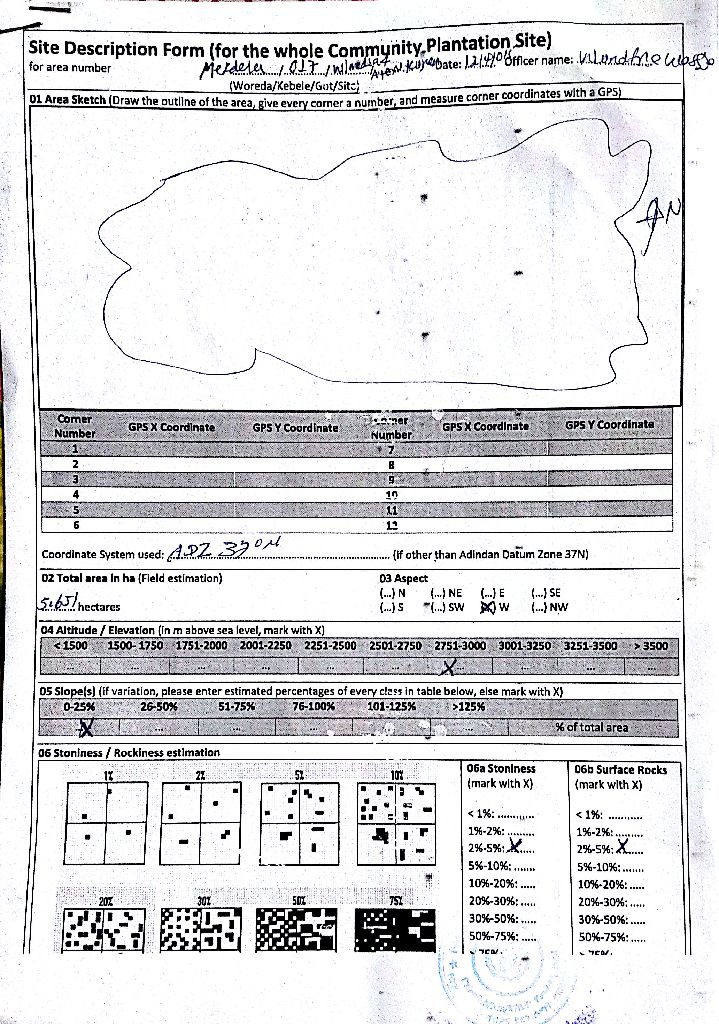 Site Description Form (for the whole Community Plantation Site)
for area number , 017, Date: Officer name:
(Woreda/Kebele/Got/Site)
01 Area Sketch (Draw the outline of the area, give every corner a number, and measure corner coordinates with a GPS)
N
Corner Number GPS X Coordinate GPS Y Coordinate Corner Number GPS X Coordinate GPS Y Coordinate
1 7
2 8
3 9
4 10
5 11
6 12
Coordinate System used: ADZ 37°N (if other than Adindan Datum Zone 37N)
02 Total area in ha (Field estimation) 03 Aspect
(...) N (...) NE (...) E (...) SE
5.651 hectares (...) S (...) SW (X) W (...) NW
04 Altitude / Elevation (in m above sea level, mark with X)
<1500 1500-1750 1751-2000 2001-2250 2251-2500 2501-2750 2751-3000 3001-3250 3251-3500 > 3500
... ... ... ... ... ... X ... ... ...
05 Slope(s) (if variation, please enter estimated percentages of every class in table below, else mark with X)
0-25% 26-50% 51-75% 76-100% 101-125% >125%
X ... ... ... ... ... % of total area
06 Stoniness / Rockiness estimation
1% 2% 5% 10%
20% 30% 50% 75%
06a Stoniness
(mark with X)
< 1%: ...........
1%-2%: .........
2%-5%: X
5%-10%: .......
10%-20%: .....
20%-30%: .....
30%-50%: .....
50%-75%: .....
> 75%:
06b Surface Rocks
(mark with X)
< 1%: ...........
1%-2%: .........
2%-5%: X
5%-10%: .......
10%-20%: .....
20%-30%: .....
30%-50%: .....
50%-75%: .....
> 75%: